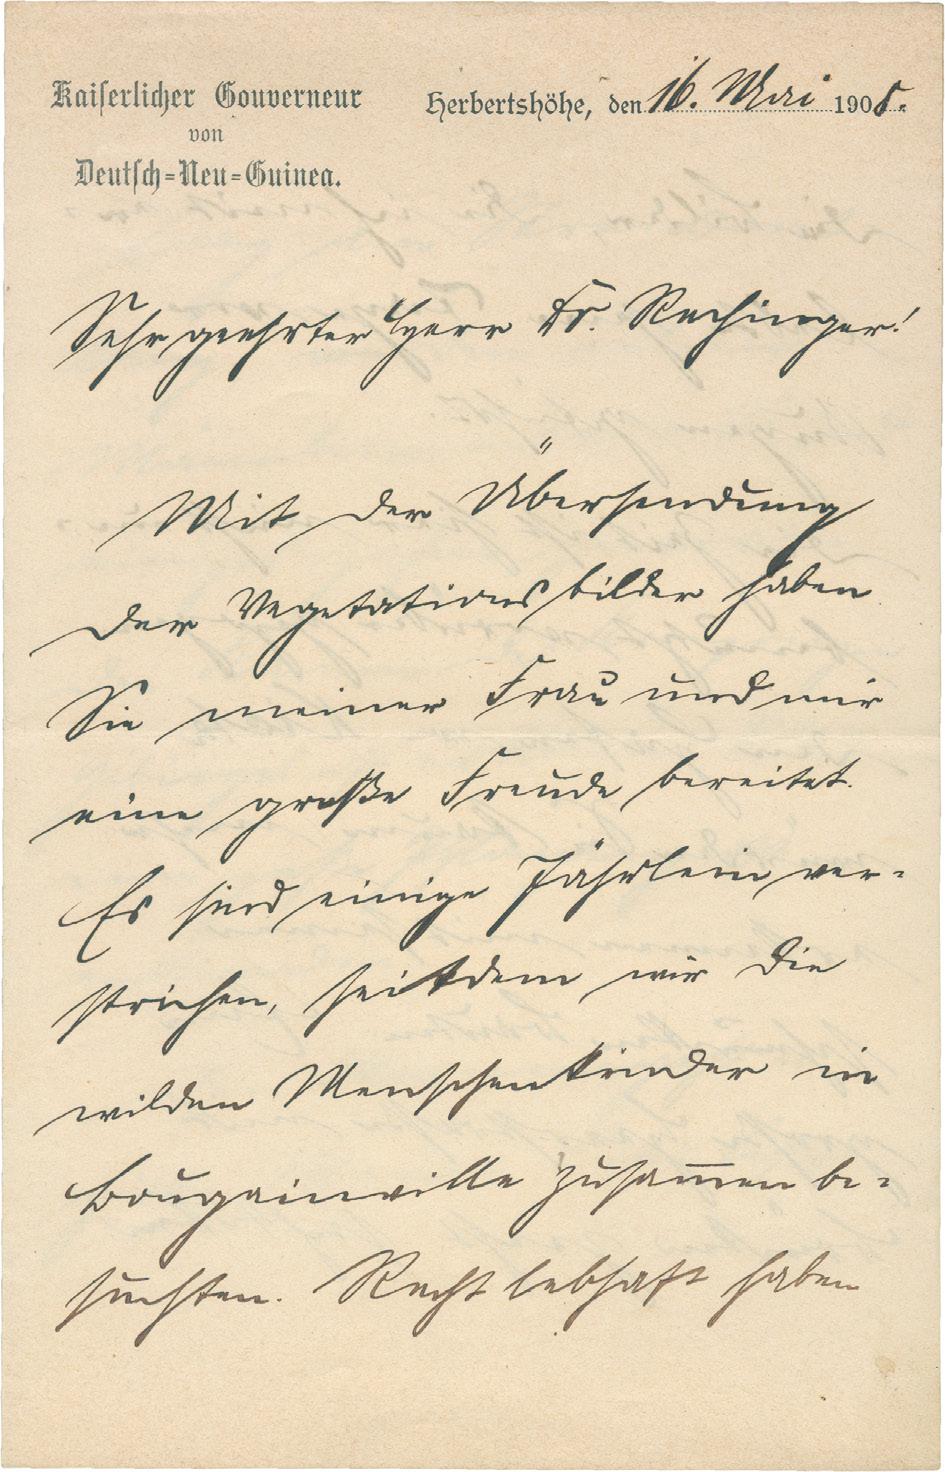 Kaiserlicher Gouverneur
von
Deutsch=Neu=Guinea.
Herbertshöhe, den 16. Mai 1908.
Sehr geehrter Herr Dr. Rechinger!
Mit der Übersendung
der Vegetationsbilder haben
Sie meiner Frau und mir
eine große Freude bereitet.
Es sind einige Jährlein ver-
strichen, seitdem wir die
wilden Menschenkinder in
Bougainville zusammen be-
suchten. Recht lebhaft haben